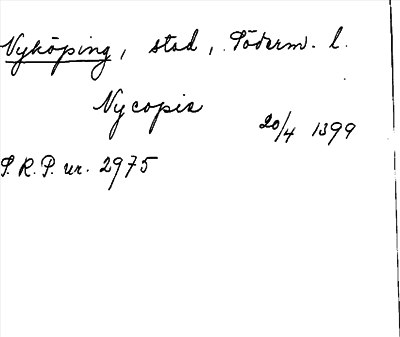 Nyköping, stad, Söderm. l.
Nycopia
20/4 1399
S.R.P. nr. 2975